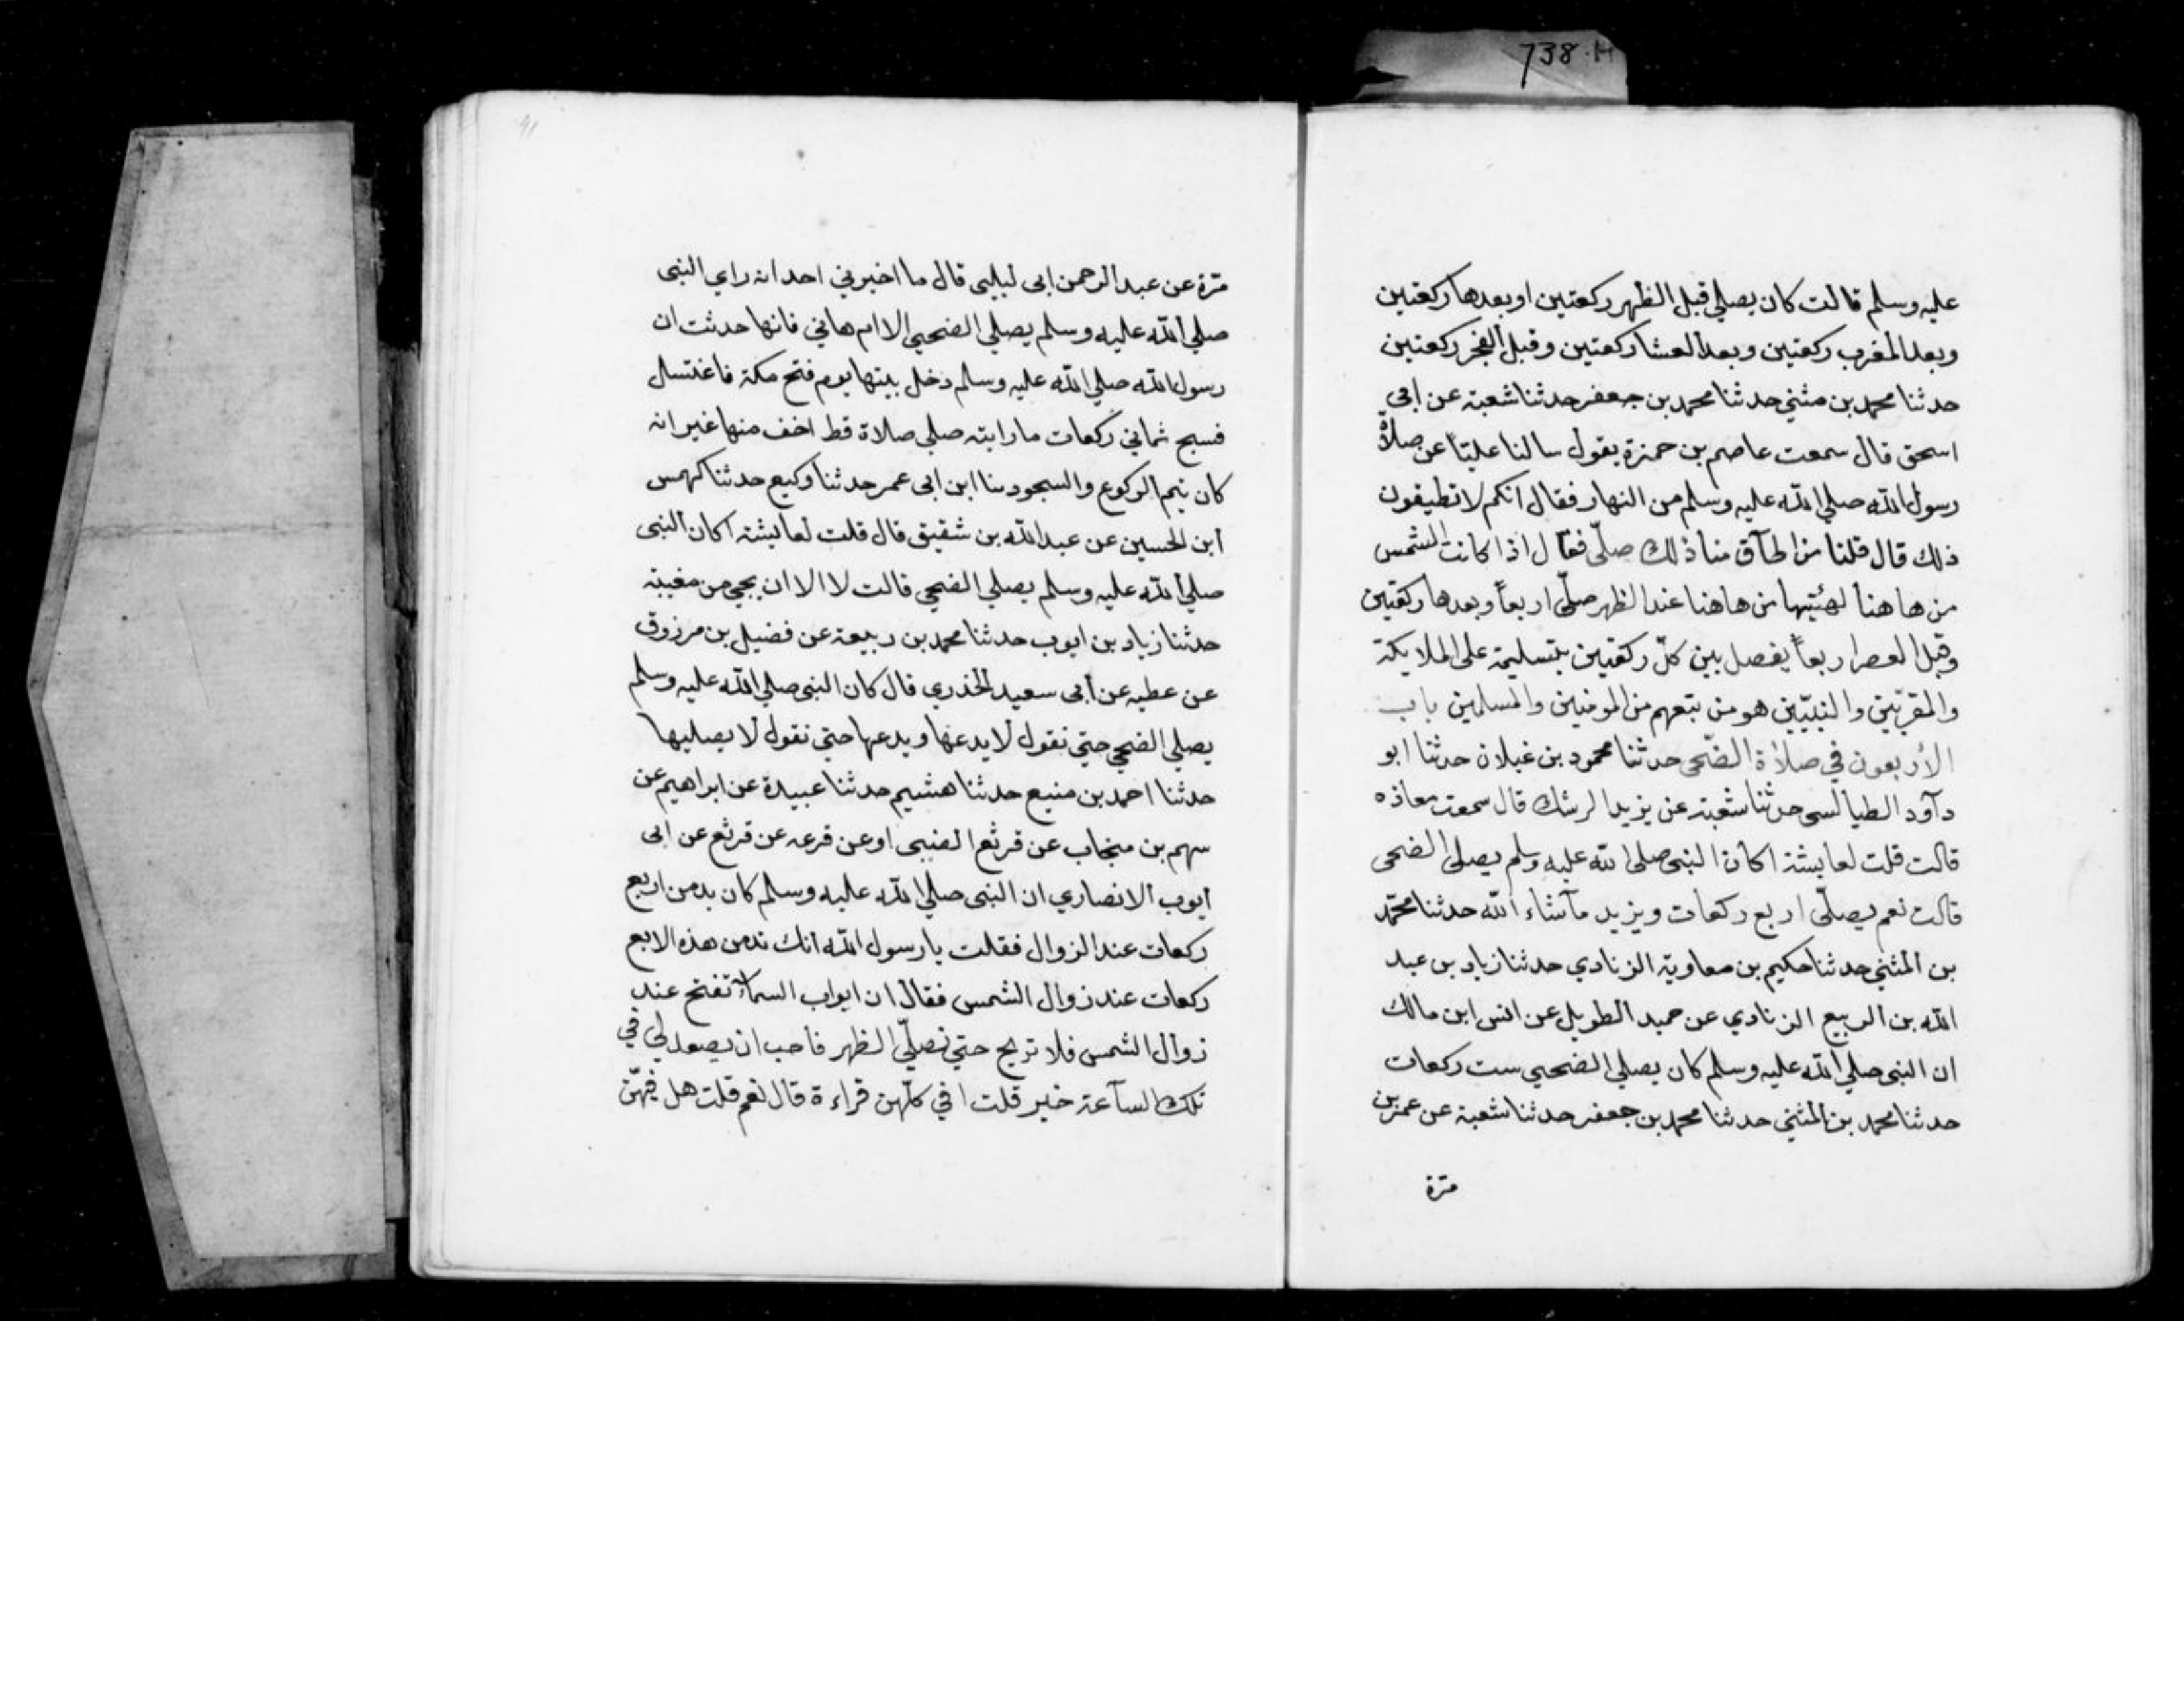 738.H
عليه وسلم قالت كان يصلي قبل الظهر ركعتين اوبعدها ركعتين
وبعد المغرب ركعتين وبعد العشا ركعتين وقبل الفجر ركعتين
حدثنا محمد بن مثني حدثنا محمد بن جعفر حدثنا شعبة عن ابي
اسحق قال سمعت عاصم بن حمزة يقول سالنا عليّاً عن صلاة
رسول الله صلي الله عليه وسلم من النهار فقال انكم لا تطيقون
ذلك قال قلنا من اطآق منا ذلك صلّي فقال اذا كانت الشمس
من هاهنا لهئيتها من هاهنا عند الظهر صلّي اربعاً وبعدها ركعتين
وقبل العصر اربعاً يفصل بين كلّ ركعتين بتسليمة على الملايكة
والمقربّين والنبيّين هو من تبعهم من المومنين والمسلمين باب
الأربعون في صلاة الضّحى حدثنا محمود بن غيلان حدثنا ابو
دآود الطيالسى حدثنا شعبة عن يزيد الرشك قال سمعت معاذه
قالت قلت لعايشة اكان النبى صلى الله عليه وسلم يصلى الضحى
قالت نعم يصلّى اربع ركعات ويزيد مآشاء الله حدثنا محمّد
بن المثني حدثنا حكيم بن معاوية الزنادي حدثنا زياد بن عبد
الله بن الربيع الزنادي عن حميد الطويل عن انس ابن مالك
ان النبى صلي الله عليه وسلم كان يصلي الضحيي ست ركعات
حدثنا محمد بن المثني حدثنا محمد بن جعفر حدثنا شعبة عن عمر بن
مرّة
91
مرّة عن عبد الرحمن ابى ليليى قال ما اخبرني احد انه راي النبى
صلي الله عليه وسلم يصلي الضحيي الا ام هاني فانها حدثت ان
رسول الله صلي الله عليه وسلم دخل بيتها يوم فتح مكة فاغتسال
فسبح ثماني ركعات ما رايته صلي صلاة قط اخف منها غير انه
كان يتم الركوع والسجود ثنا ابن ابى عمر حدثنا وكيع حدثنا كهمس
ابن الحسين عن عبد الله بن شقيق قال قلت لعايشة اكان النبى
صلي الله عليه وسلم يصلي الضحي قالت لا الا ان يجي من مغيبة
حدثنا زياد بن ايوب حدثنا محمد بن ربيعة عن فضيل بن مرزوق
عن عطيه عن ابى سعيد الخذري قال كان النبى صلي الله عليه وسلم
يصلي الضحي حتي نقول لا يدعها ويدعها حتي نقول لا يصليها
حدثنا احمد بن منيع حدثنا هشيم حدثنا عبيدة عن ابراهيم عن
سهم بن منجاب عن قرثع الضبى اوعن قرعه عن قرثع عن ابى
ايوب الانصاري ان النبى صلي الله عليه وسلم كان يدمن اربع
ركعات عند الزوال فقلت يا رسول الله انك تدمن هذه الابع
ركعات عند زوال الشمس فقال ان ابواب السمآء تفتح عند
زوال الشمس فلا تربح حتي نصلّي الظهر فاحب ان يصعد لي في
تلك السآعة خير قلت افي كلّهن قراءة قال نعم قلت هل فيهّن